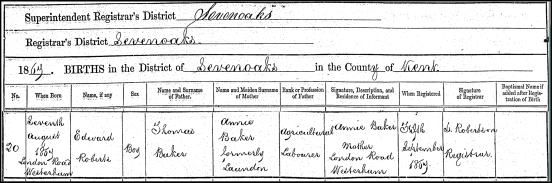 Superintendent Registrar's District Sevenoaks
Registrar's District Sevenoaks
1869. BIRTHS in the District of Sevenoaks in the County of Kent
No. When Born Name, if any Sex Name and Surname of Father. Name and Maiden Surname of Mother Rank or Profession of Father Signature, Description, and Residence of Informant When Registered Signature of Registrar Baptismal Name if added after Registration of Birth
20
Seventh August 1869 London Road Westerham
Edward Roberts
Boy
Thomas Baker
Annie Baker formerly Laundon
Agricultural Labourer
Annie Baker Mother London Road Westerham
Fifth September 1869
Robertson Registrar.